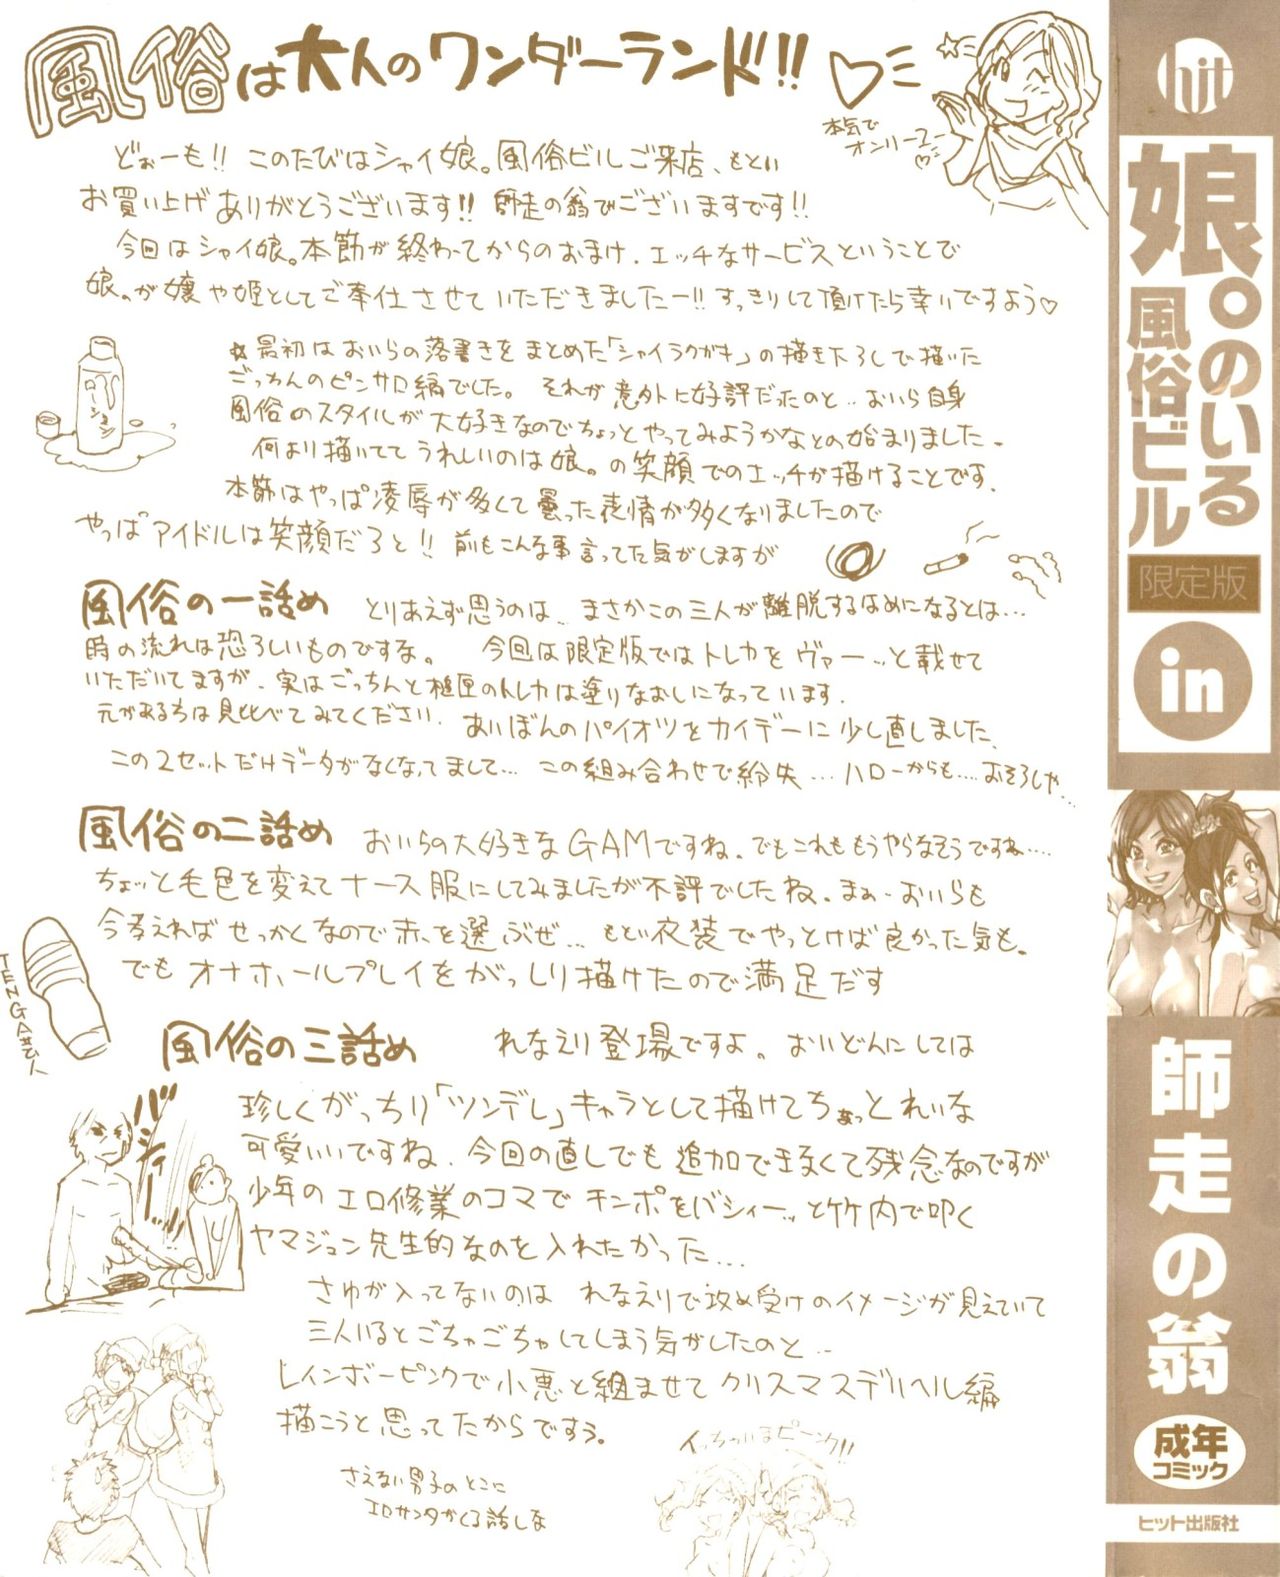 風俗は大人のワンダーランド!!
本気で
オンリーユー
どぉーも!! このたびはシャイ娘。風俗ビルご来店、もとい
お買い上げありがとうございます!! 師走の翁でございますです!!
今回はシャイ娘。本節が終わってからのおまけ、エッチなサービスということで
娘。が嬢や姫としてご奉仕させていただきましたー!! すっきりして頂けたら幸いですよう♡
ローション
★最初はおいらの落書きをまとめた「シャイラクガキ」の描き下ろしで描いた
ごっちんのピンサロ編でした。それが意外に好評だったのと‥おいら自身
風俗のスタイルが大好きなのでちょっとやってみようかなとの始まりました。
何より描いててうれしいのは娘。の笑顔でのエッチが描けることです。
本節はやっぱ凌辱が多くて曇った表情が多くなりましたので
やっぱアイドルは笑顔だろと!! 前もこんな事言ってた気がしますが
風俗の一話め とりあえず思うのは、まさかこの三人が離脱するはめになるとは…
時の流れは恐ろしいものですな。 今回は限定版ではトレカをヴァーッと載せて
いただいてますが、実はごっちんと のトレカは塗りなおしになっています。
元がある方は見比べてみてください。あいぼんのパイオツをカイデーに少し直しました、
この2セットだけデータがなくなってまして… この組み合わせで紛失…ハローからも‥‥おそろしや…
風俗の二話め おいらの大好きなGAMですね。でもこれももうやらなそうですね‥‥
ちょッと毛色を変えてナース服にしてみましたが不評でしたね。まぁ‥おいらも
今考えればせっかくなので赤を選ぶぜ… もとい衣装でやっとけば良かった気も。
でもオナホールプレイをがっしり描けたので満足だす
TENGA芸人
風俗の三話め れなえり登場ですよ。おいどんにしては
珍しくがっちり「ツンデレ」キャラとして描けてちょっとれいな
可愛いいですね、今回の直しでも追加できなくて残念なのですが
少年のエロ修業のコマでチンポをバシィーッと竹内で叩く
ヤマジュン先生的なのを入れたかった…
バシィーッ
さゆが入ってないのは れなえりで攻め受けのイメージが見えていて
三人いるとごちゃごちゃしてしまう気がしたのと‥
レインボーピンクで小悪と組ませてクリスマスデリヘル編
描こうと思ってたからですぅ。
いっちっいまピーンク!!
さえない男子のとこに
エロサンタがくる話しな
hit
娘。のいる
風俗ビル
限定版
in
師走の翁
成年
コミック
ヒット出版社